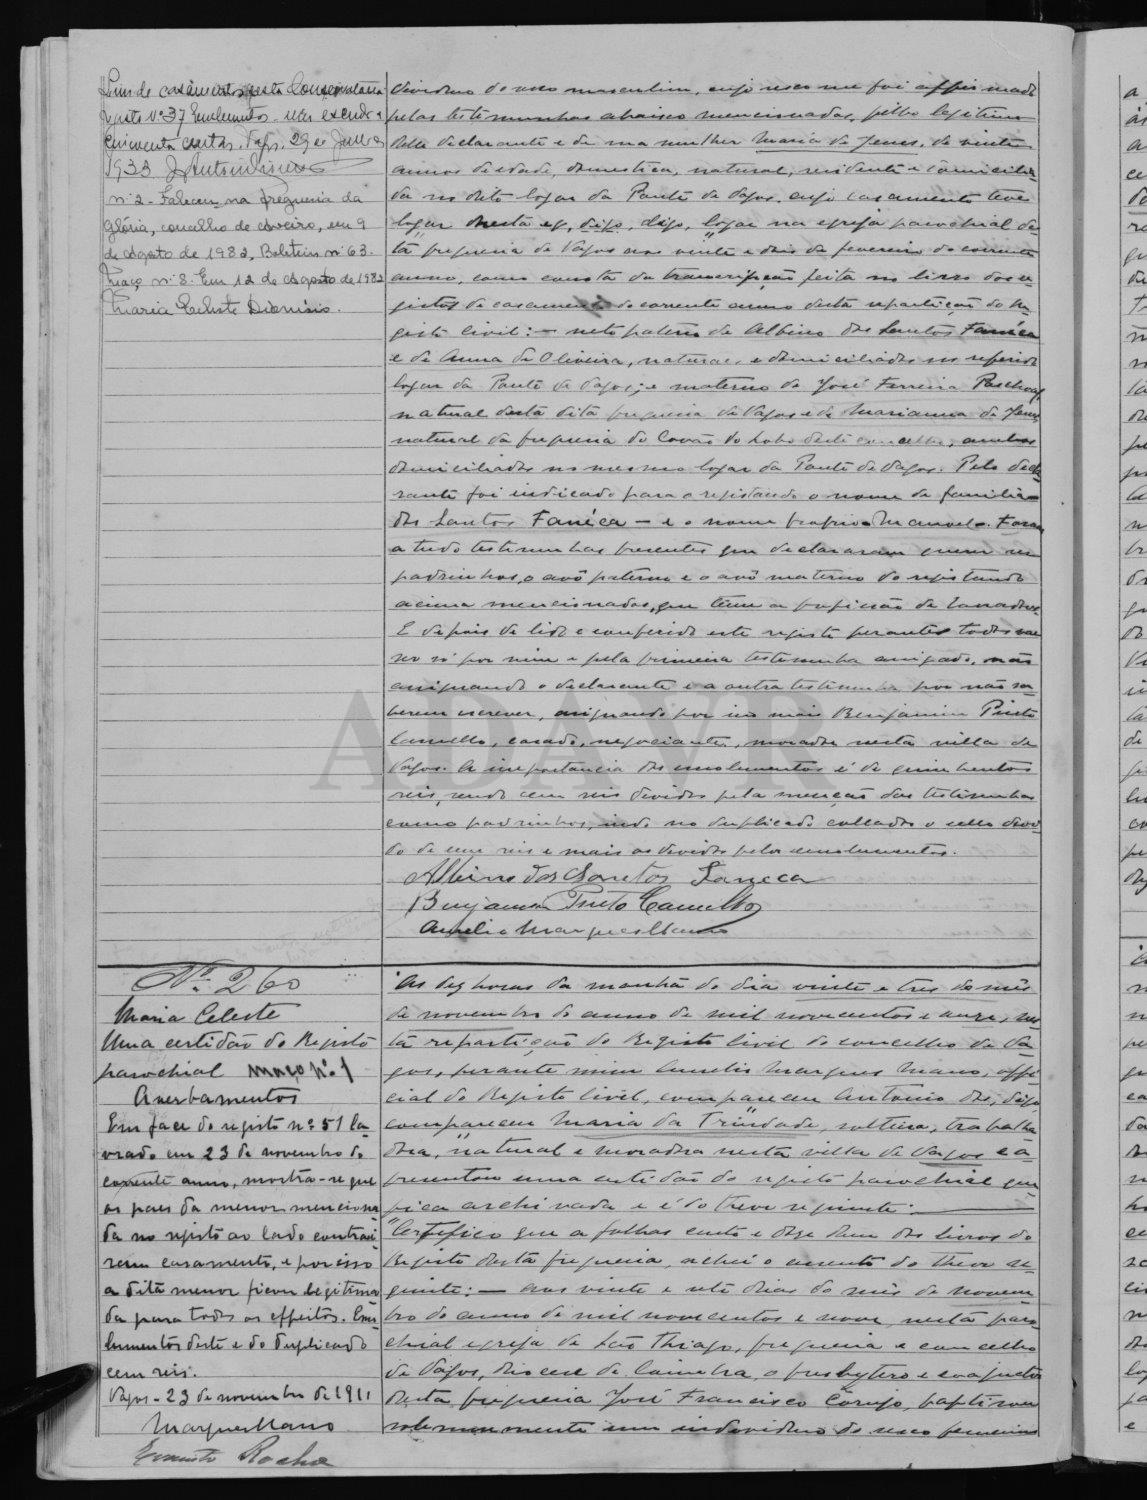 Livro de casamentos desta Conservatória
Registo Nº 37 Emolumentos um escudo e
cincoenta centavos. Vagos, 29 de Julho de
1933
nº 2 - Faleceu na freguesia da
Glória, concelho de Aveiro, em 9
de Agosto de 1982, Boletim nº 63.
Maço nº 8. Em 12 de Agosto de 1982
Maria Celeste Dionisio.
dividuo do sexo masculino, cujo sexo me foi affirmado
pelas testemunhas abaixo mencionadas, filho legitimo
delle declarante e de sua mulher Maria de Jesus, de vinte
annos de edade, domestica, natural, residente e domicilia-
da no dito logar da Ponte de Vagos, cujo casamento teve
logar nesta eg, digo, digo, logar na egreja parochial des-
ta freguesia de Vagos aos vinte e dois de fevereiro do corrente
anno, como consta da transcripção feita no livro dos re-
gistos de casamento do corrente anno desta repartição do Re-
gisto civil: — neto paterno de Albino dos Santos Fanéca
e de Anna de Oliveira, naturaes e domiciliados no referido
logar da Ponte de Vagos; e materno de José Ferreira Paschoal
natural desta dita freguesia de Vagos e de Marianna de Jesus
natural da freguesia do Covão do Lobo deste concelho, ambos
domiciliados no mesmo logar da Ponte de Vagos. Pelo decla-
rante foi indicado para o registando o nome de familia
dos Santos Fanéca — e o nome proprio Manoel. Foram
a tudo testemunhas presentes que declararam querer ser
padrinhos, o avô paterno e o avô materno do registando
acima mencionados, que teem a profissão de lavradores.
E depois de lido e conferido este registo perante todos vae
ser só por mim e pela primeira testemunha assignado, não
assignando o declarante e a outra testemunha por não sa-
berem escrever, assignando por isso mais Benjamim Pinto
Camello, casado, negociante, morador nesta villa de
Vagos. A importancia dos emolumentos é de quinhentos
reis, sendo cem reis devidos pela menção das testemunhas
como padrinhos, indo no duplicado collados o sello devi-
do de cem reis e mais os devidos pelos emolumentos.
Albino dos Santos Faneca
Benjamim Pinto Camello
Aurelio Marques Mano
ADAVR
Nº 260
Maria Celeste
Uma certidão do Registo
parochial maço nº 1
Averbamentos
Em face do registo nº 51 la-
vrado em 23 de novembro do
corrente anno, mostra-se que
os paes da menor menciona-
da no registo ao lado contrahi-
rem casamento, e por isso
a dita menor ficou legitima-
da para todos os effeitos. Emo-
lumentos deste e do duplicado
cem reis.
Vagos - 23 de novembro de 1911
Marques Mano
Ernesto Rocha
As dez horas da manhã do dia vinte e tres do mês
de novembro do anno de mil novecentos e onze, nes-
ta repartição do Registo civil do concelho de Va-
gos, perante mim Aurelio Marques Mano, offi-
cial do Registo civil, compareceu Antonio dos, digo,
compareceu Maria da Trindade, solteira, trabalha-
dora, natural e moradora nesta villa de Vagos e a-
presentou uma certidão do registo parochial que
fica archivada e é do theor seguinte:
"Certifico que a folhas cento e doze dum dos livros do
Registo desta freguesia, achei o assento do theor se-
guinte: — aos vinte e sete dias do mês de novem-
bro do anno de mil novecentos e nove, nesta paro-
chial egreja de São Thiago, freguesia e concelho
de Vagos, diocese de Coimbra, o presbytero e coadjuctor
desta freguesia José Francisco Corujo, baptisou
solemnemente um individuo do sexo feminino